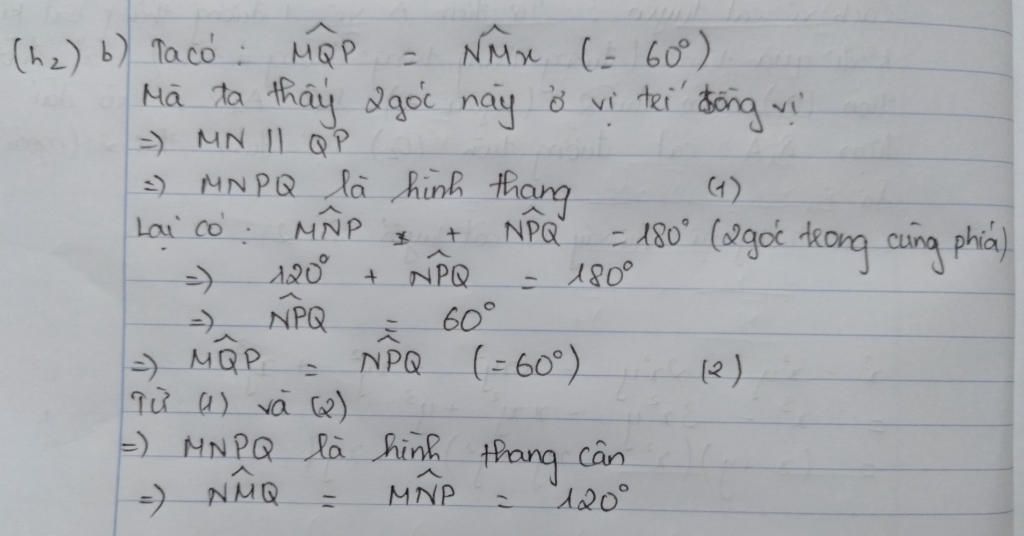 (h2) b) Ta có : M̂QP = N̂Mx (= 60°)
Mà ta thấy 2 góc này ở vị trí đồng vị
=) MN || QP
=) MNPQ là hình thang (1)
Lại có : MN̂P + NP̂Q = 180° (2 góc trong cùng phía)
=) 120° + NP̂Q = 180°
=) NP̂Q = 60°
=) MQ̂P = NP̂Q (= 60°) (2)
Từ (1) và (2)
=) MNPQ là hình thang cân
=) NM̂Q = MN̂P = 120°